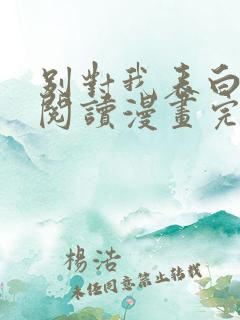 別對我表白
閱讀漫畫完
楊浩
未經同意禁止轉載